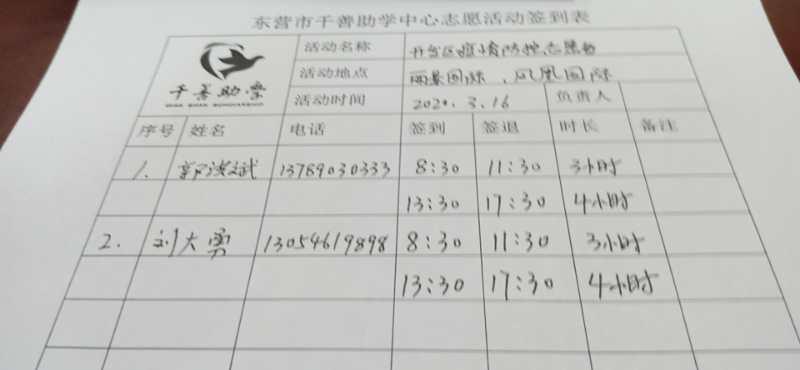 东营市千善助学中心志愿活动签到表
千善助学
活动名称 社区疫情防控志愿
活动地点 丽景国际、凤凰国际
活动时间 2020.3.16 负责人
序号 姓名 电话 签到 签退 时长 备注
1. 郭洪斌 13789030333 8:30 11:30 3小时
13:30 17:30 4小时
2. 刘大勇 13054619898 8:30 11:30 3小时
13:30 17:30 4小时